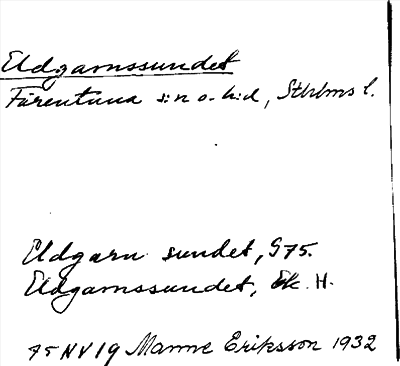 Eldgarnssundet
Färentuna s:n o. h:d, Sthlms l.
Eldgarn sundet, G75.
Eldgarnssundet, Ek. H.
75 NV 19 Manne Eriksson 1932